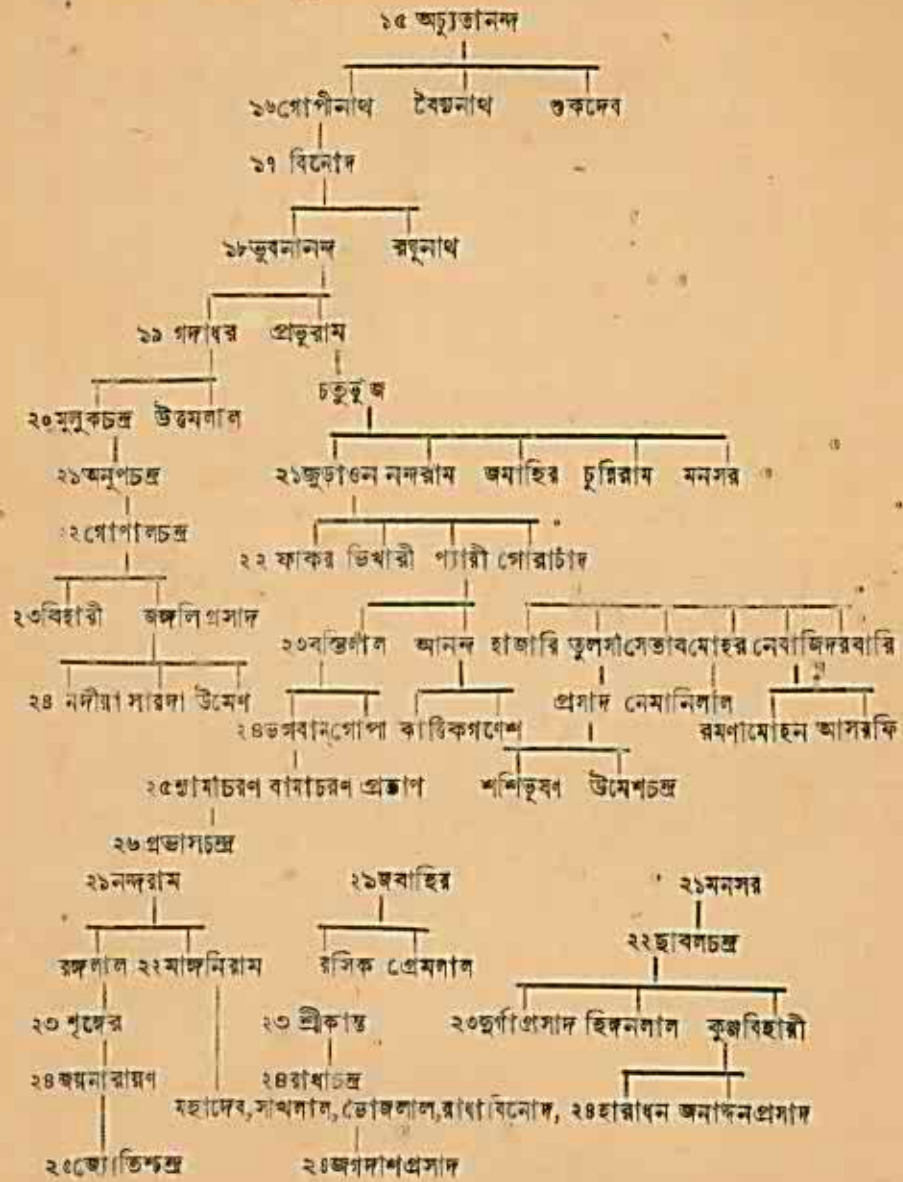 ১৫ অচ্যুতানন্দ
১৬গোপীনাথ বৈদ্যনাথ শুকদেব
১৭ বিনোদ
১৮ভুবনানন্দ রঘুনাথ
১৯ গদাধর প্রভুরাম
চতুর্ভুজ
২০মুলুকচন্দ্র উত্তমলাল
২১অনুপচন্দ্র ২১জুড়াওন নন্দরাম জমাহির চুন্নিরাম মনসর
২গোপালচন্দ্র
২২ ফাকর ভিখারী প্যারী গোরাচাঁদ
২৩বিহারী জঙ্গলিপ্রসাদ
২৩বস্তিলাল আনন্দ হাজারি তুলসী সেতাব মোহর নেবাজি দরবারি
২৪ নদীয়া সারদা উমেশ
প্রসাদ নেমানিলাল
২৪ভগবান গোপী কার্ত্তিক গণেশ রমণীমোহন আসরফি
২৫শ্যামাচরণ বামাচরণ প্রতাপ শশিভূষণ উমেশচন্দ্র
২৬ প্রভাসচন্দ্র
২১নন্দরাম ২১জবাহির ২১মনসর
২২ছাবলচন্দ্র
রঙ্গলাল ২২মাঙ্গনিরাম রসিক প্রেমলাল
২৩ শৃঙ্গের ২৩ শ্রীকান্ত ২৩দুর্গাপ্রসাদ হিঙ্গনলাল কুঞ্জবিহারী
২৪জয়নারায়ণ ২৪রাধাচন্দ্র
মহাদেব, সাখলাল, ভোজলাল, রাধাবিনোদ, ২৪হারাধন জনার্দ্দনপ্রসাদ
২৫জ্যোতিশ্চন্দ্র ২৫জগদীশপ্রসাদ